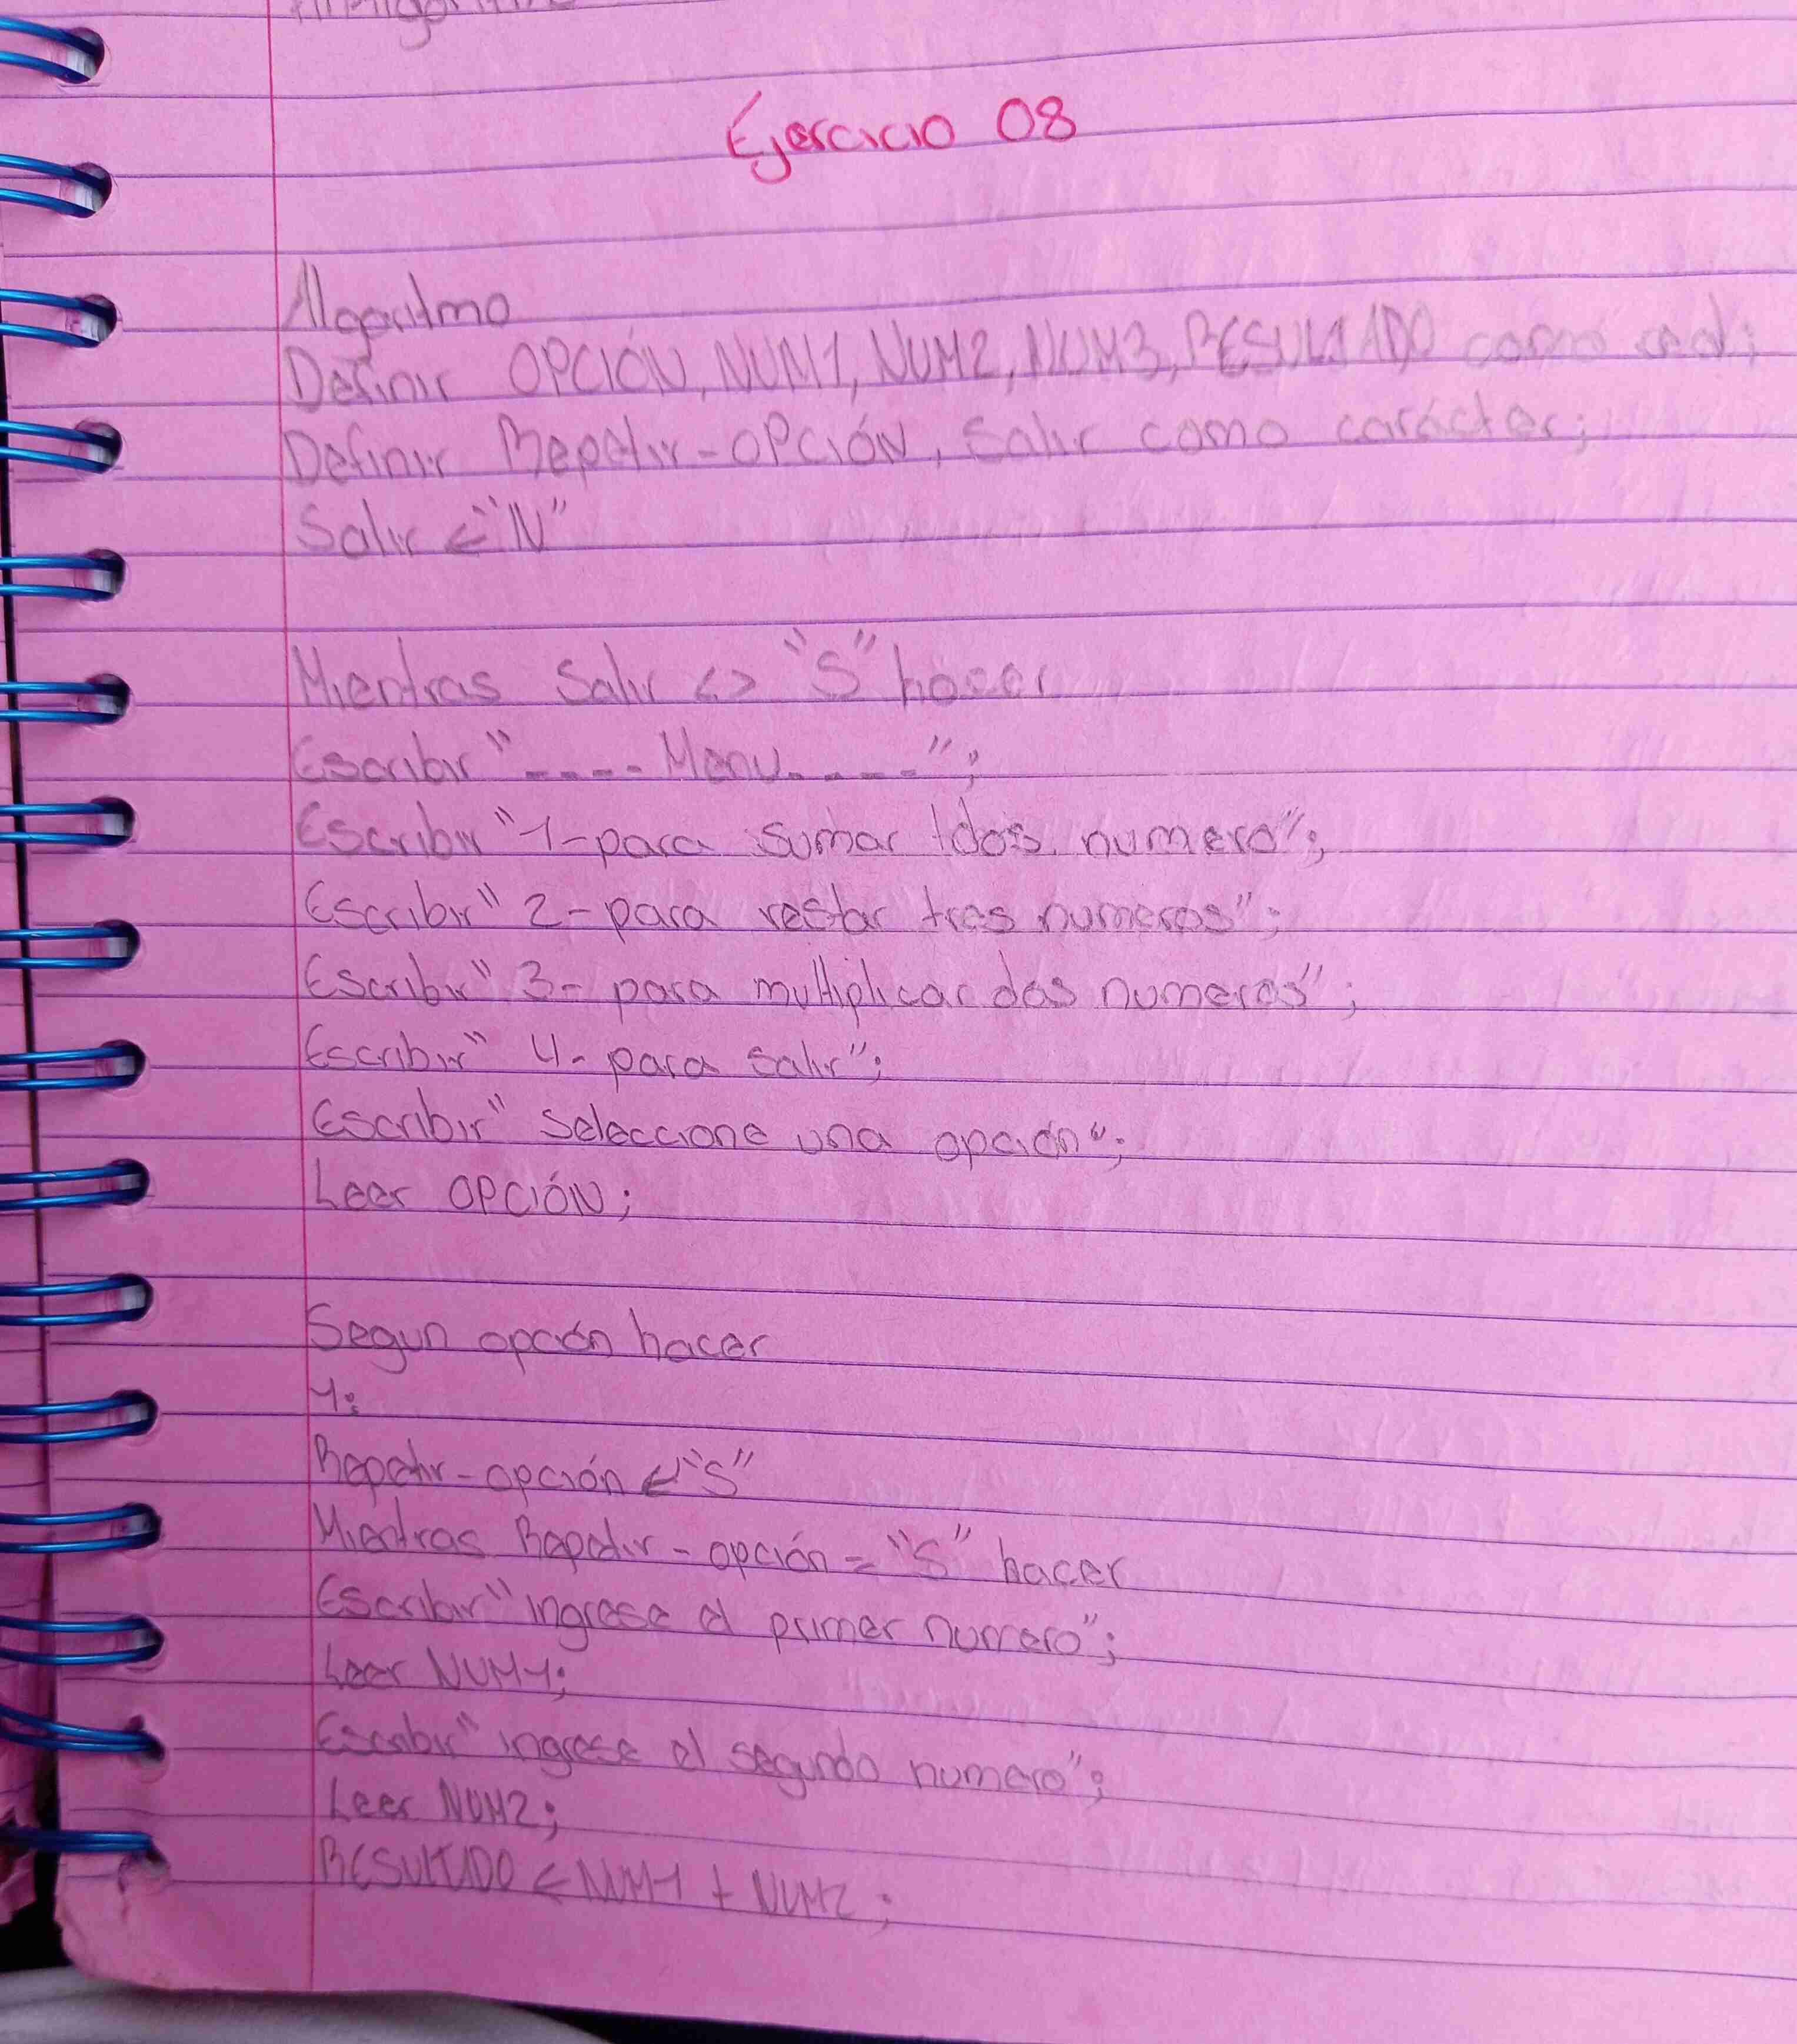 Ejercicio 08
Algoritmo
Definir OPCIÓN, NUM1, NUM2, NUM3, RESULTADO como real;
Definir Repetir-OPCIÓN, Salir como carácter;
Salir ← "N"
Mientras Salir <> "S" hacer
Escribir "----Menu----";
Escribir "1-para sumar dos numero";
Escribir "2-para restar tres numeros";
Escribir "3- para multiplicar dos numeros";
Escribir "4- para salir";
Escribir "Seleccione una opción";
Leer OPCIÓN;
Segun opción hacer
1:
Repetir-opción ← "S"
Mientras Repetir-opción = "S" hacer
Escribir "ingrese el primer numero";
Leer NUM1;
Escribir "ingrese el segundo numero";
Leer NUM2;
RESULTADO ← NUM1 + NUM2;